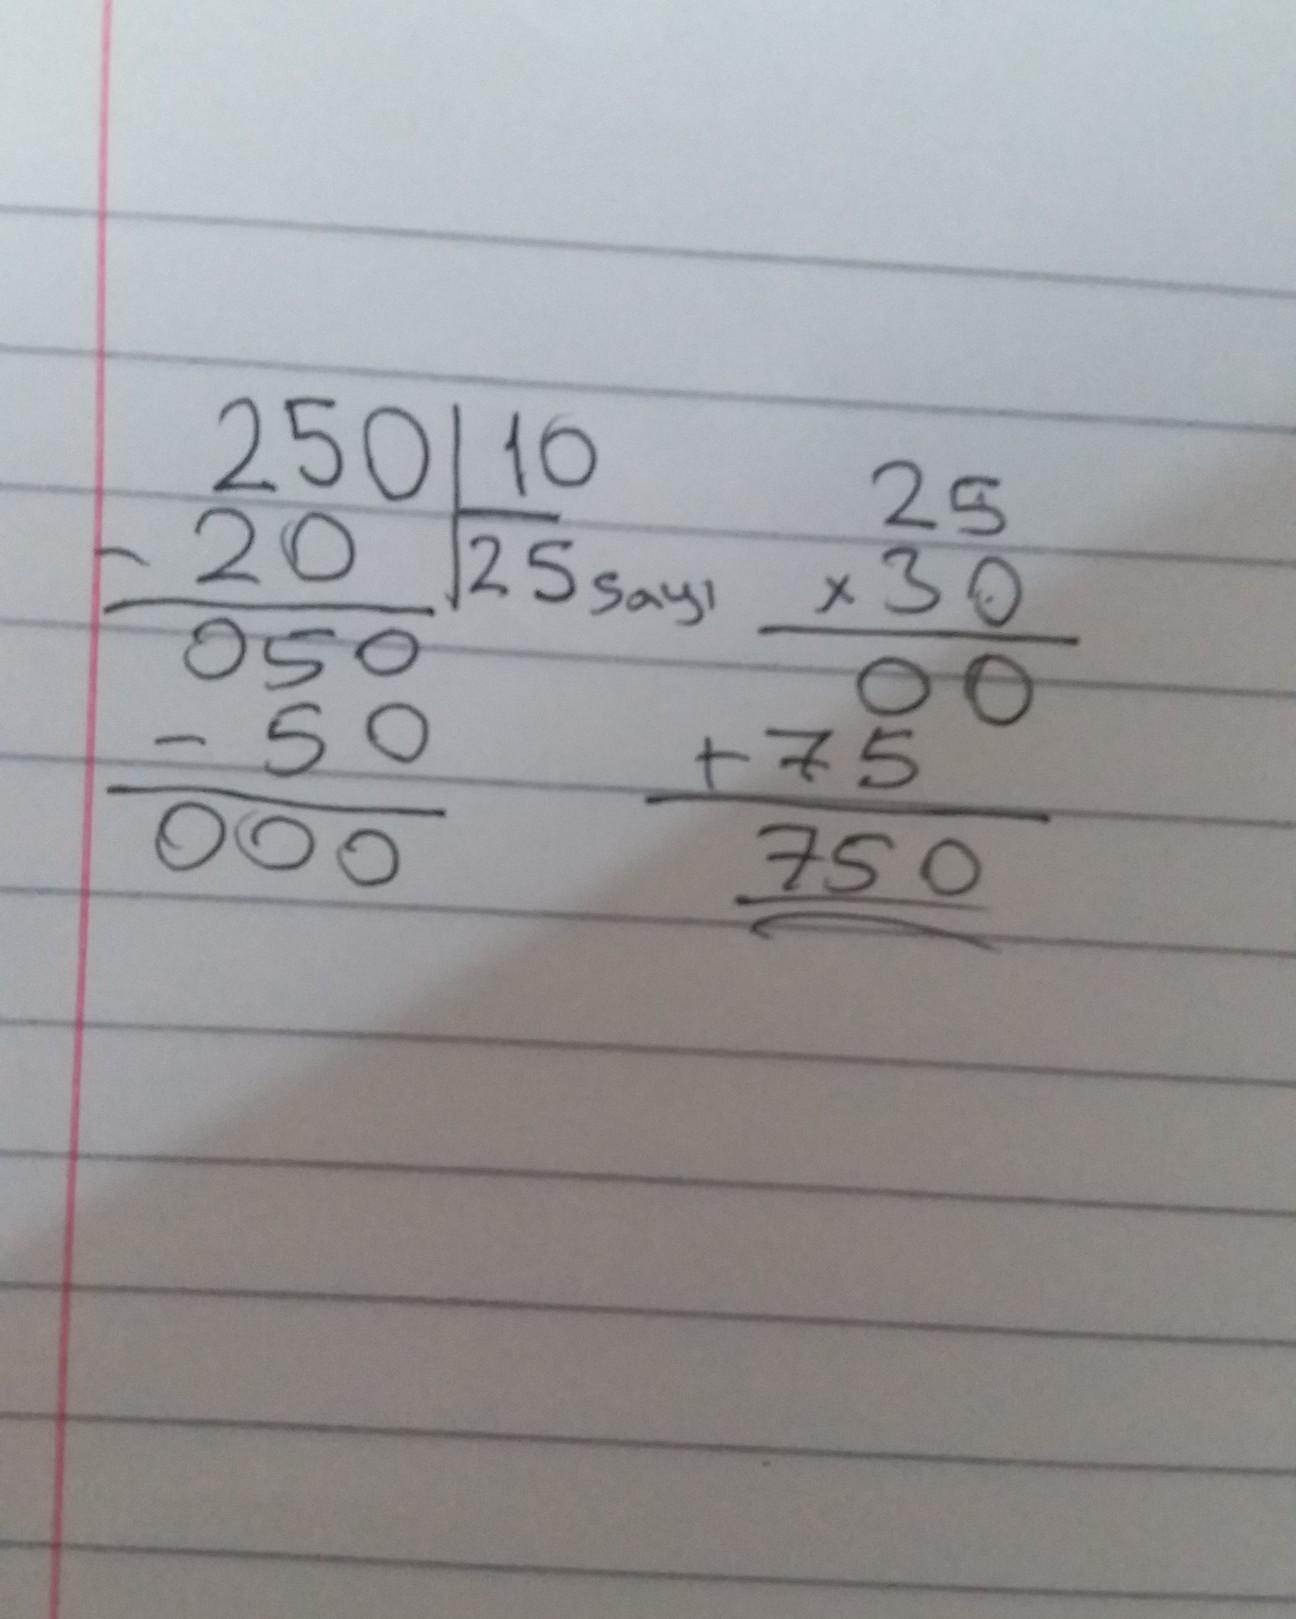 250 | 10
- 20 | 25 sayı
050
- 50
000
25
x 30
00
+ 75
750